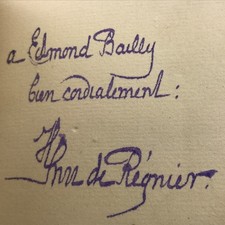 a Edmond Bailly
bien cordialement :
Hri de Régnier.